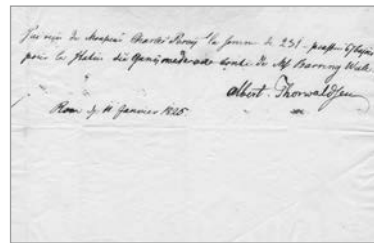 J'ai reçu de Monsieur Charles la somme de 231 piastres 67 bajoc
pour la Statue du Ganymede de Mr Barring Wall.
Albert Thorwaldsen
Rom d. 11 Janvier 1825.